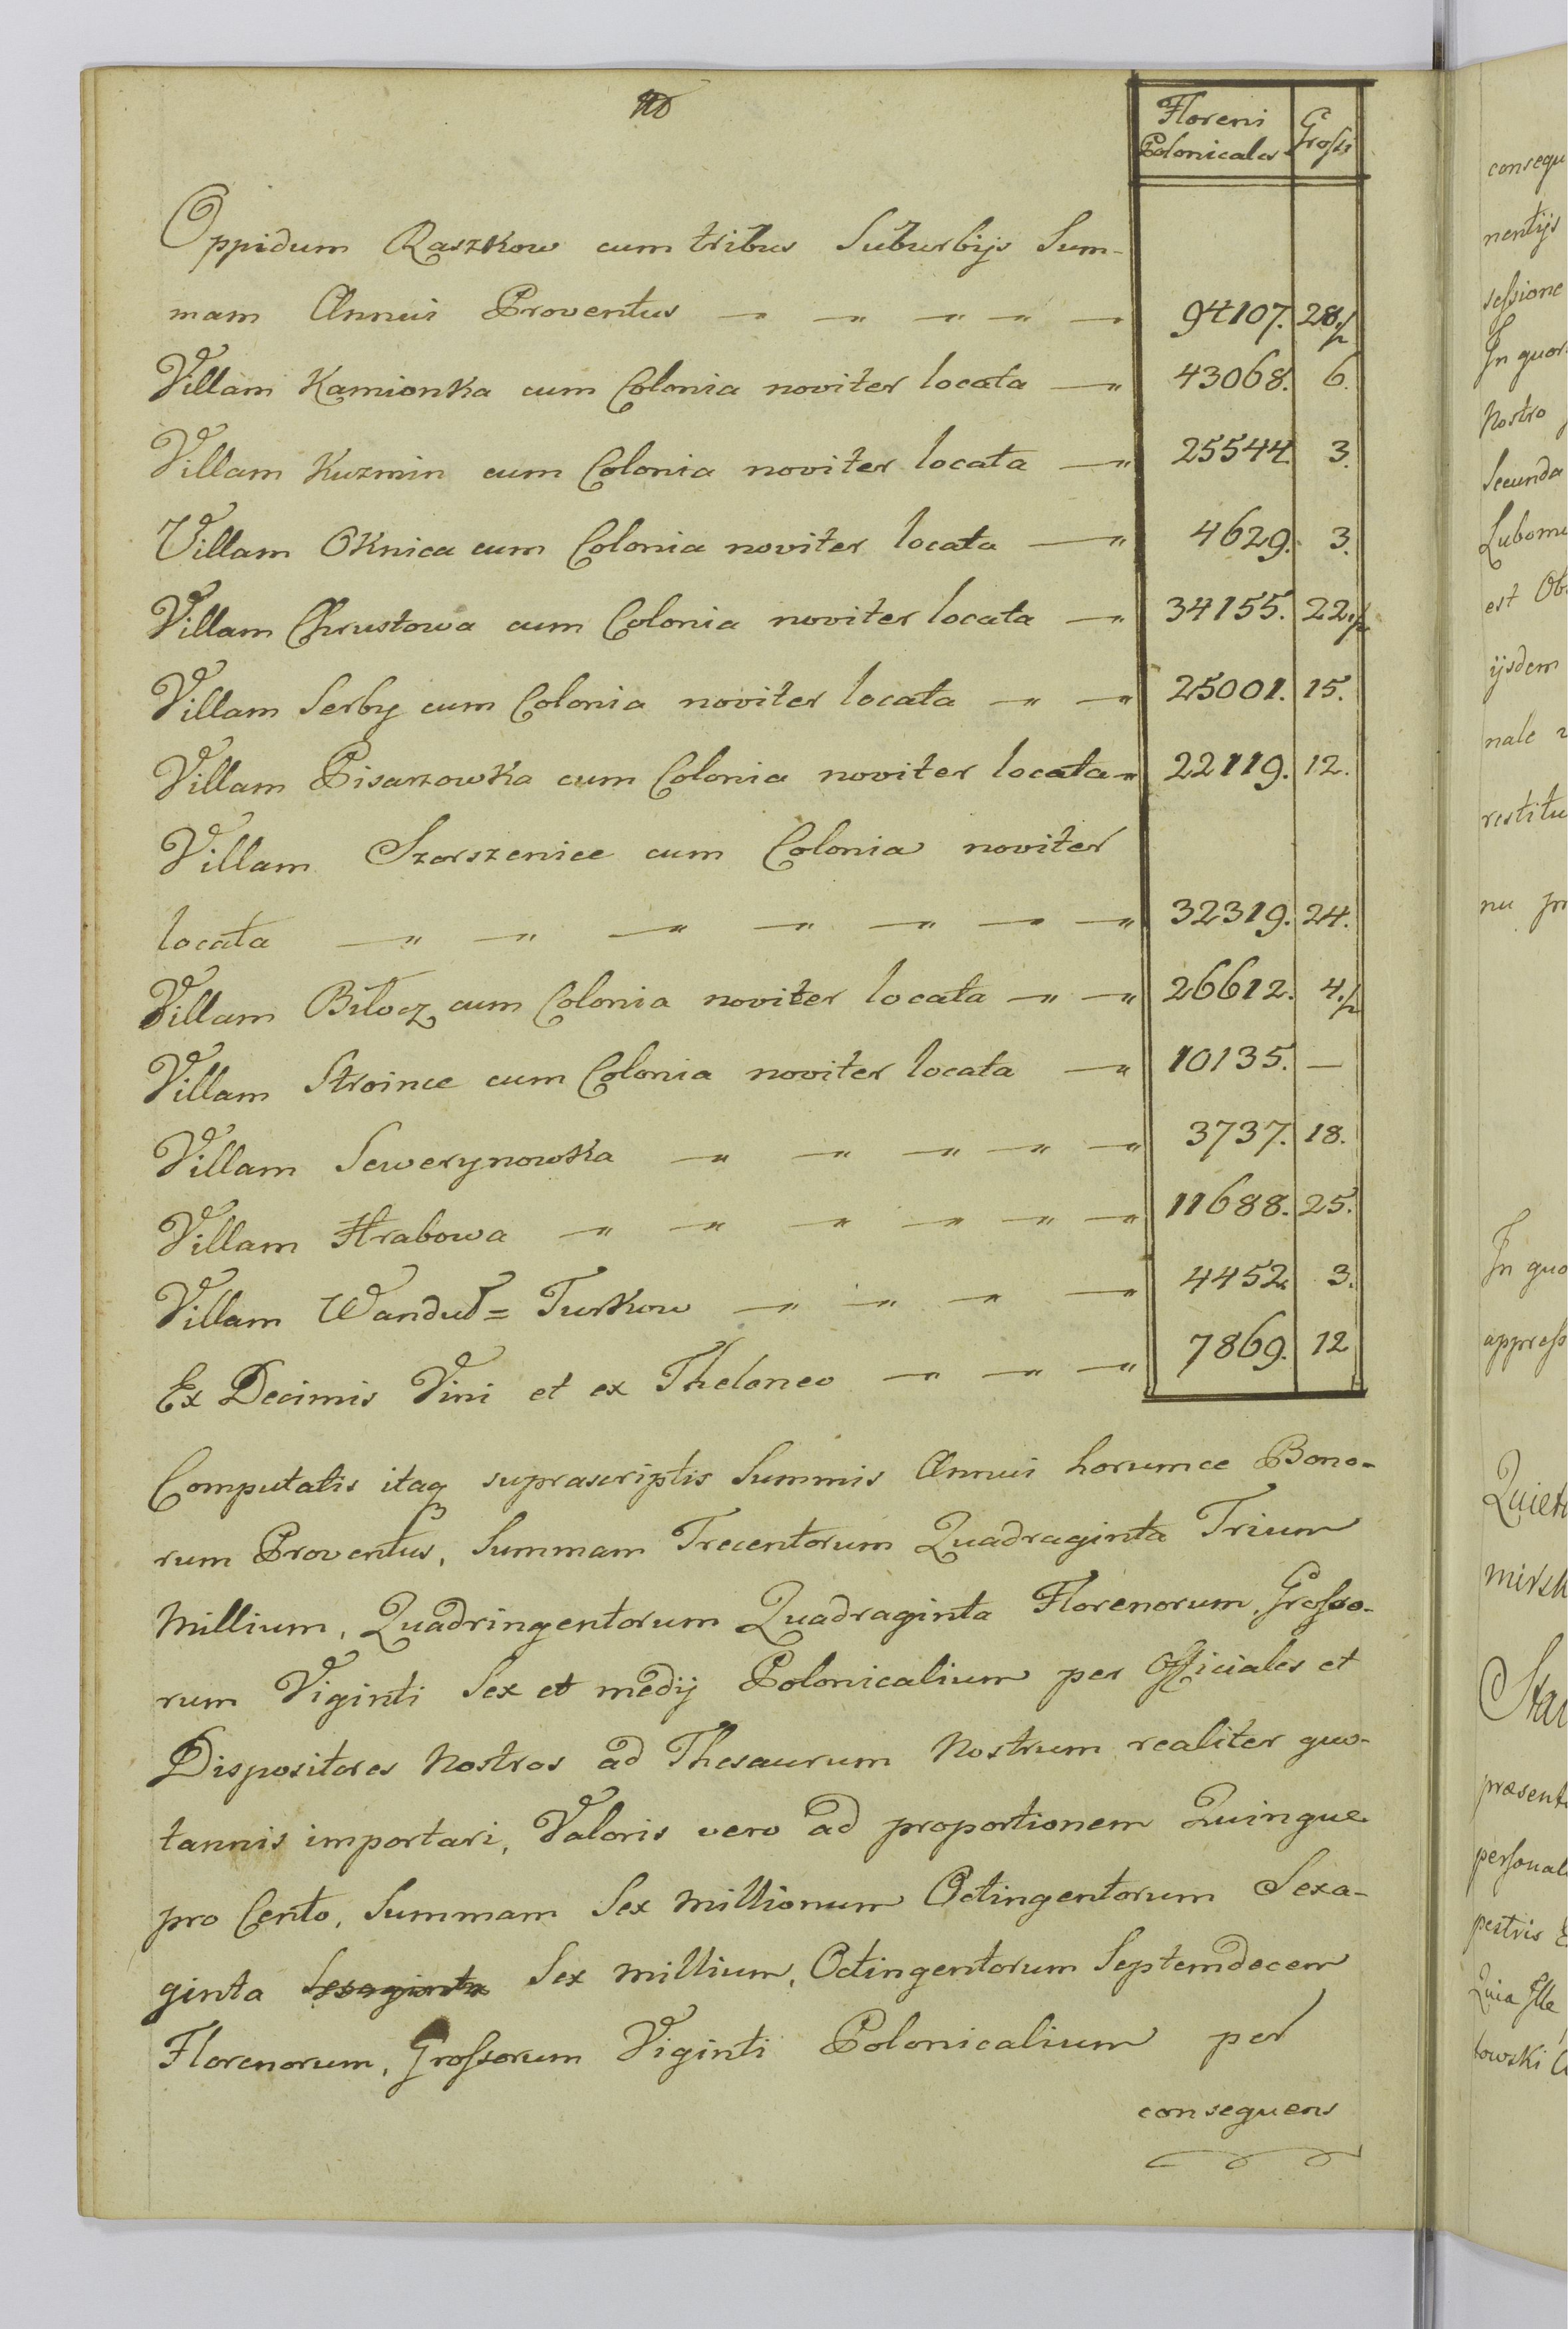 Floreni Polonicales Grossi
Oppidum Raszkow cum tribus Suburbijs Sum-
mam Annui Proventus — — — — — 94107. 28½
Villam Kamionka cum Colonia noviter locata — 43068. 6.
Villam Kuzmin cum Colonia noviter locata — 25544. 3.
Villam Oknica cum Colonia noviter locata — 4629. 3.
Villam Chrustowa cum Colonia noviter locata — 34155. 22½
Villam Serby cum Colonia noviter locata — — 25001. 15.
Villam Pisarzowka cum Colonia noviter locata — 22119. 12.
Villam Szorszenice cum Colonia noviter
locata — — — — — — — 32319. 24.
Villam Biłocz cum Colonia noviter locata — — 26612. 4½
Villam Stroince cum Colonia noviter locata — 10135. —
Villam Sewerynowka — — — — — 3737. 18.
Villam Hrabowa — — — — — — 11688. 25.
Villam = Turkow — — — — 4452. 3.
Ex Decimis Vini et ex Theloneo — — — 7869. 12
Computatis itaq suprascriptis Summis Annui horumce Bono-
rum Proventus, Summam Trecentorum Quadraginta Trium
Millium, Quadringentorum Quadraginta Florenorum, Grosso-
rum Viginti Sex et medij Polonicalium per Officiales et
Dispositores Nostros ad Thesaurum Nostrum realiter quo-
tannis importari, Valoris vero ad proportionem Quinque
pro Cento, Summam Sex Millionum Octingentorum Sexa-
ginta Sexaginta Sex Millium, Octingentorum Septemdecem
Florenorum, Grossorum Viginti Polonicalium per
consequens
consequ
nentijs
sessione
In quor
Nostro
Secunda
Lubomi
est Ob
ijsdem
nale
restitu
nu
In quo
appress
Quiet
mirsk
Sta
præsent
personal
pestris
Quia Ille
towski